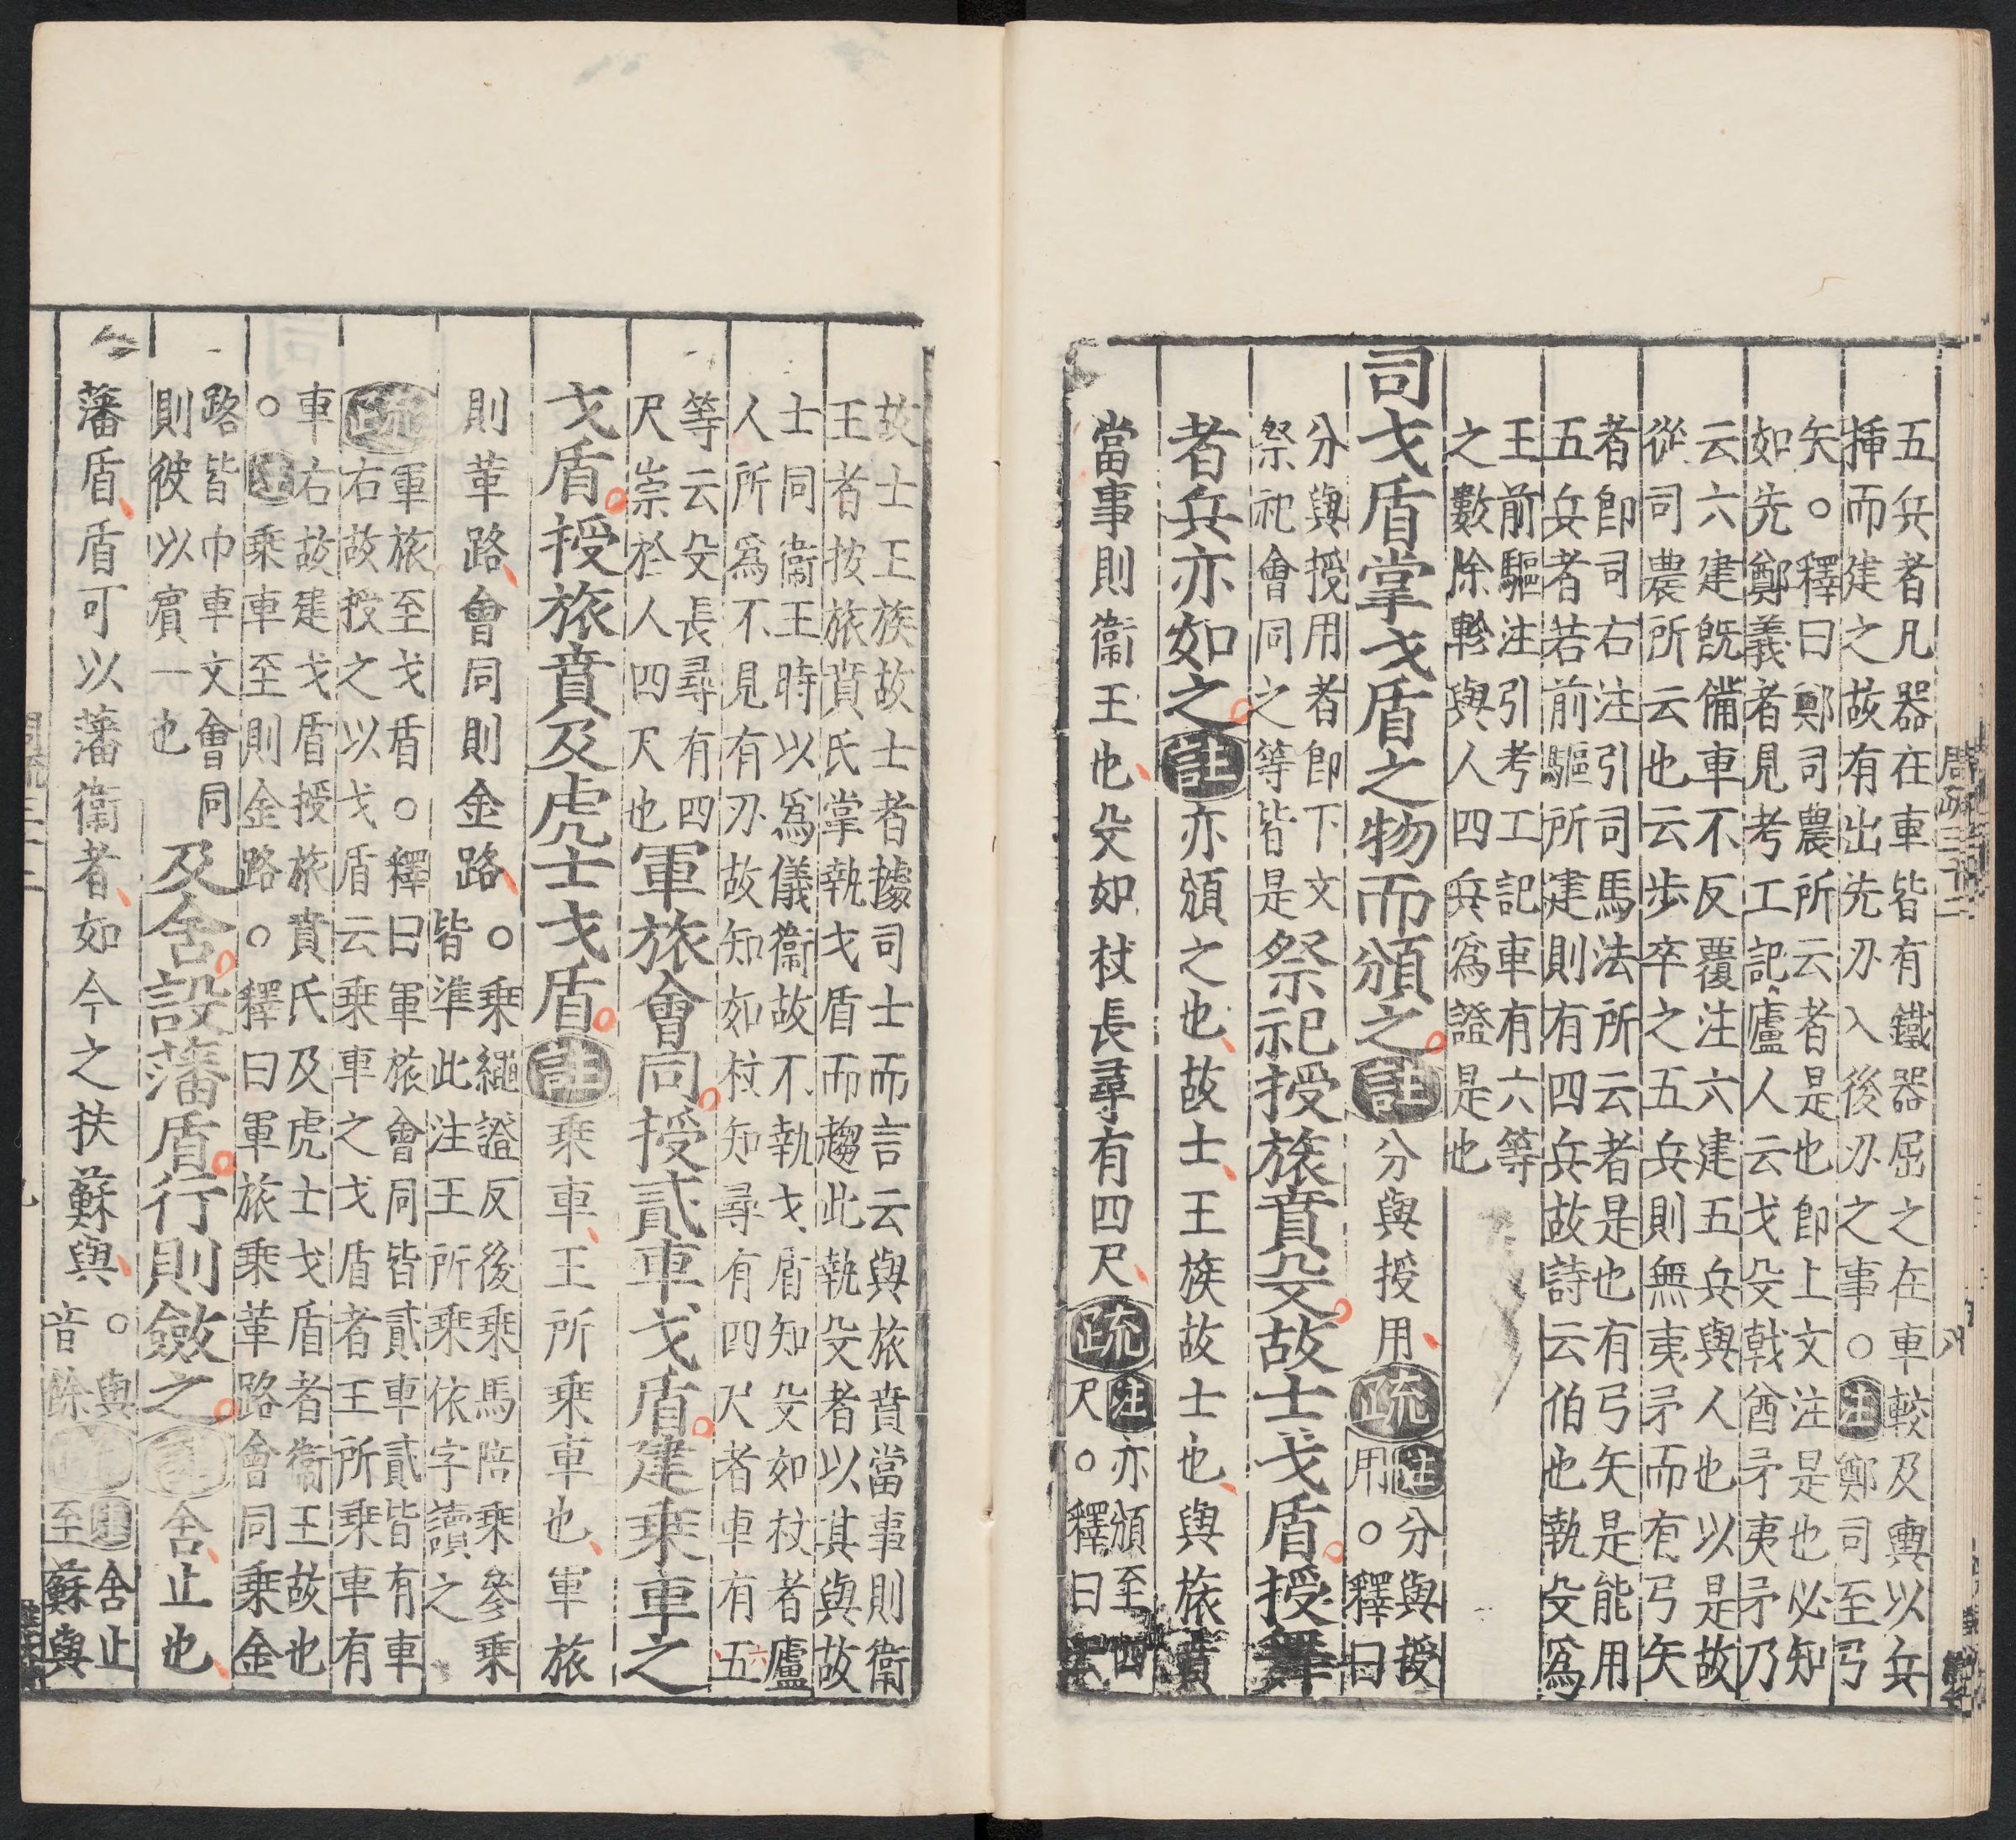 五兵者凡器在車皆有鐵器屈之在車較及輿以兵
揷而建之故有出先刃入後刃之事○注鄭司至弓
矢○釋曰鄭司農所云者是也即上文注是也必知
如先鄭義者見考工記廬人云戈殳戟酋矛夷矛乃
云六建旣備車不反覆注六建五兵與人也以是故
從司農所云也云步卒之五兵則無夷矛而有弓矢
者即司右注引司馬法所云者是也有弓矢是能用
五兵者若前驅所建則有四兵故詩云伯也執殳爲
王前驅注引考工記車有六等
之數除軫與人四兵爲證是也
司戈盾掌戈盾之物而頒之註分與授用疏
注分與授
用○釋曰
分與授用者即下文
祭祀會同之等皆是
祭祀授旅賁殳故士戈盾授舞
者兵亦如之註亦頒之也故士王族故士也與旅賁
當事則衞王也殳如杖長尋有四尺疏
注亦頒至四
尺○釋曰
周疏三十二
八
故士王族故士者據司士而言云與旅賁當事則衞
王者按旅賁氏掌執戈盾而趨此執殳者以其與故
士同衞王時以爲儀衞故不執戈盾知殳如杖者廬
人所爲不見有刃故知如杖知尋有四尺者車有五
六
等云殳長尋有四
尺崇於人四尺也
軍旅會同授貳車戈盾建乗車之
戈盾授旅賁及虎士戈盾註乗車王所乗車也軍旅
則革路會同則金路
○乗繩證反後乗馬陪乗參乗
皆準此注王所乗依字讀之
疏
軍旅至戈盾○釋曰軍旅會同皆貳車貳皆有車
右故授之以戈盾云乗車之戈盾者王所乗車有
車右故建戈盾授旅賁氏及虎士戈盾者衞王故也
○注乗車至則金路○釋曰軍旅乗革路會同乗金
路皆巾車文會同
則彼以賓一也
及舍設藩盾行則斂之註舍止也
藩盾盾可以藩衞者如今之扶蘇與
○與
音餘
疏
注舍止
至蘇與
九